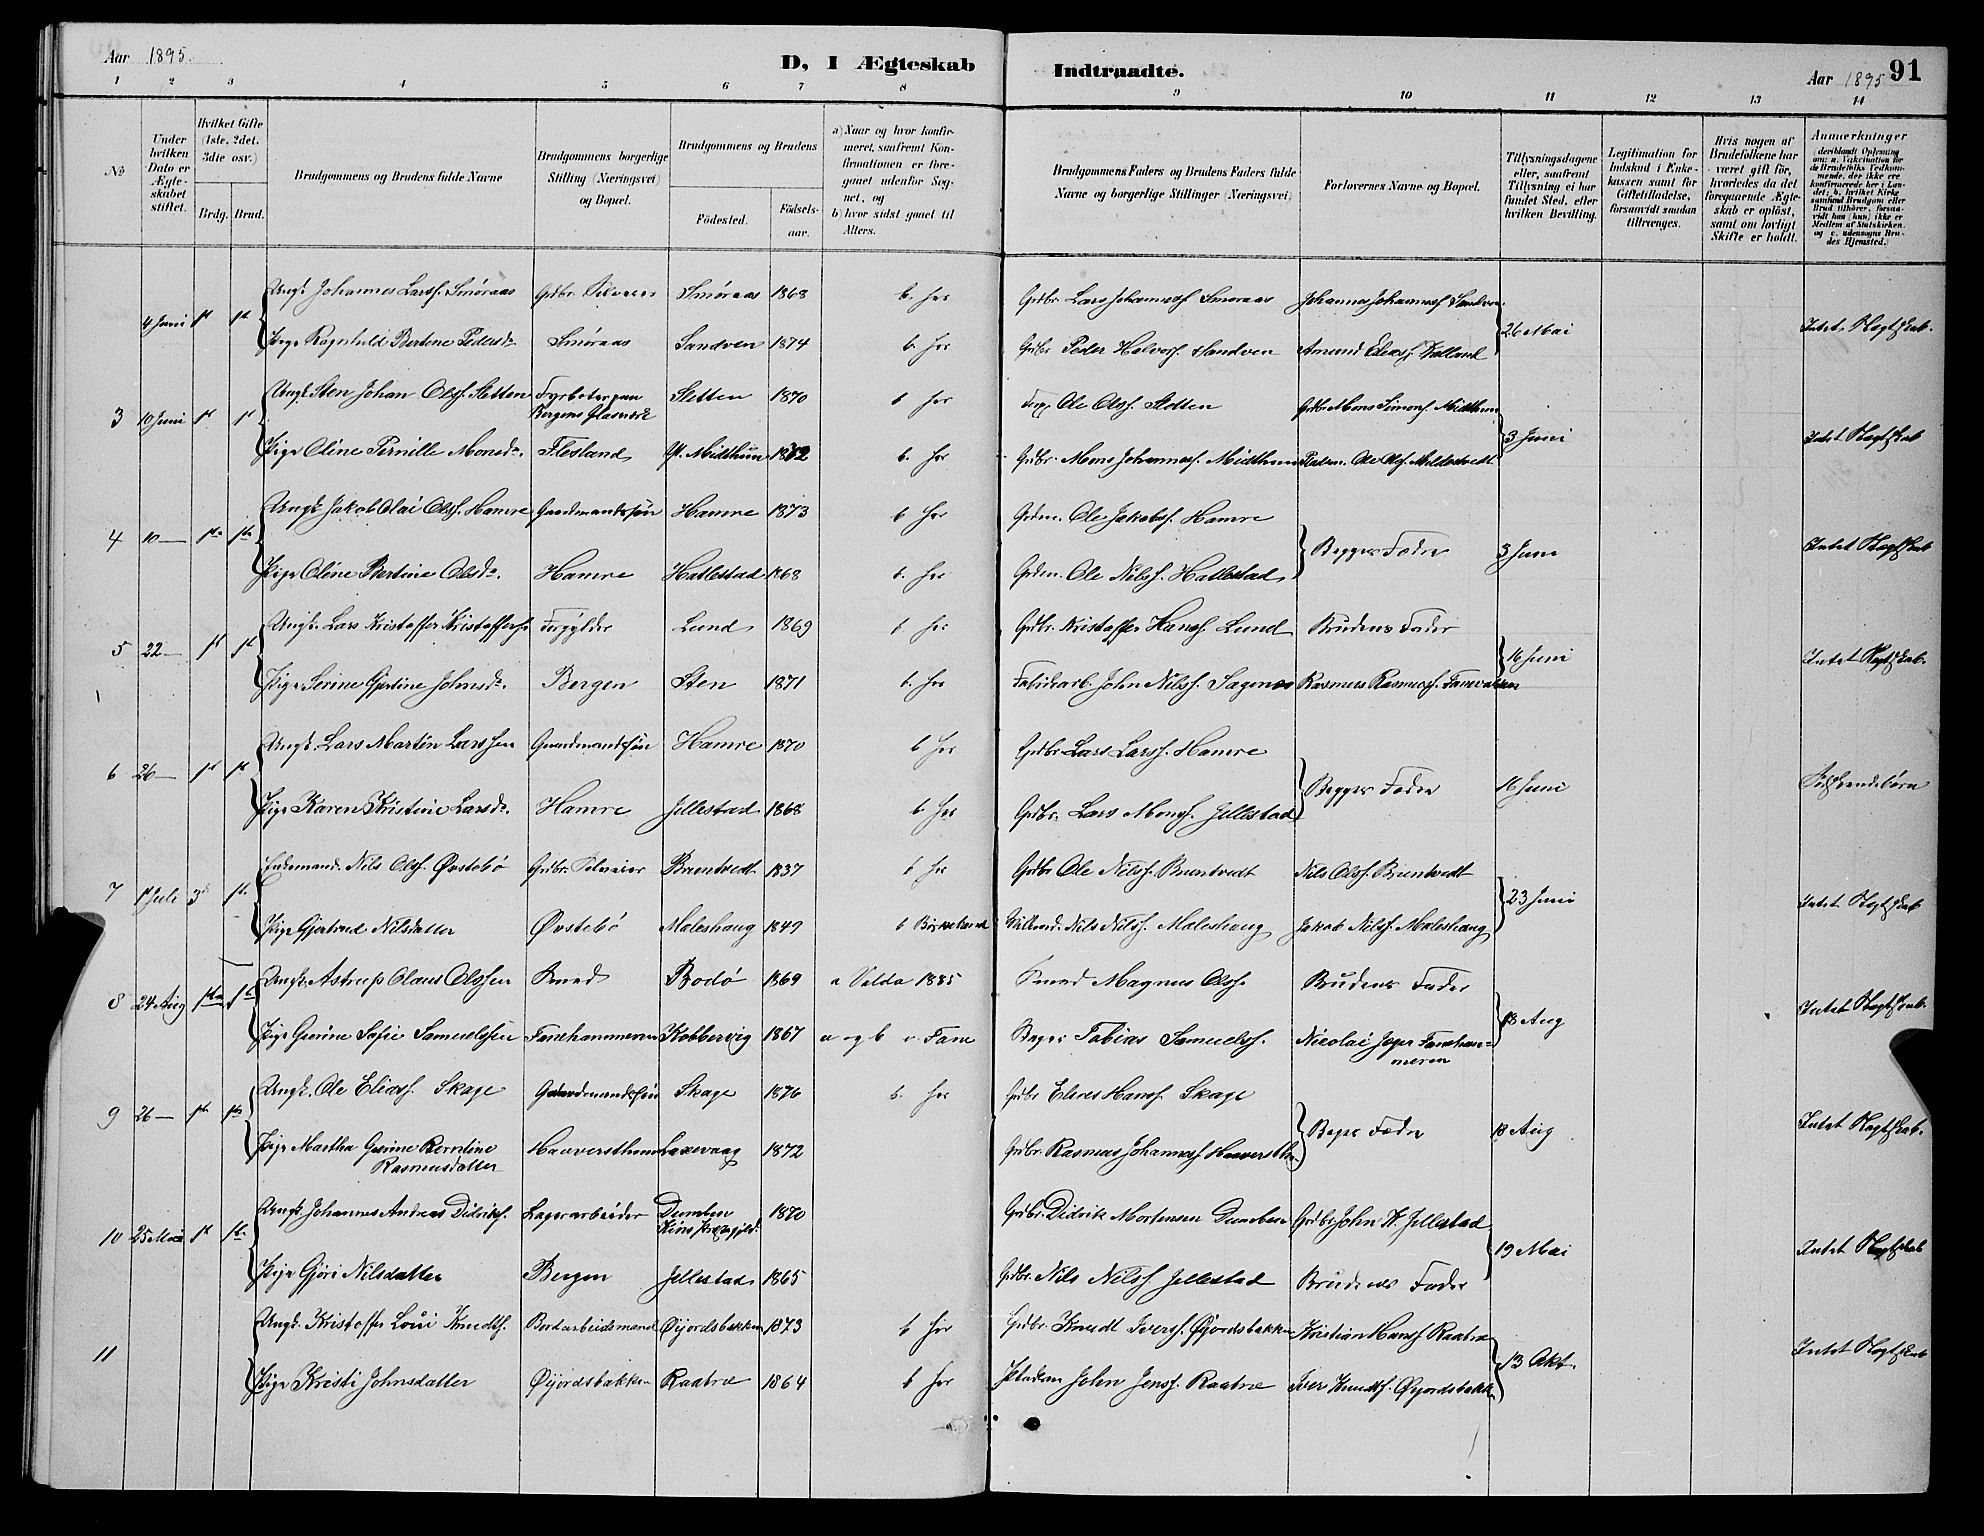 Aar 1895.
D, I Ægteskab
Indtraadte.
Aar 1895
91
1 2 3 4 5 6 7 8 9 10 11 12 13 14
No
Under hvilken Dato er Ægteskabet stiftet.
Hvilket Gifte (1ste, 2det, 3die osv.)
Brdg. Brud.
Brudgommens og Brudens fulde Navne
Brudgommens borgerlige Stilling (Næringsvei) og Bopæl.
Brudgommens og Brudens
Födested.
Födsels-aar.
a) Naar og hvor konfirmeret, saafremt Konfirmationen er foregaaet udenfor Sognet, og
b) hvor sidst gaaet til Alters.
Brudgommens Faders og Brudens Faders fulde Navne og borgerlige Stillinger (Næringsvei)
Forlovernes Navne og Bopæl.
Tillysningsdagene eller, saafremt Tillysning ei har fundet Sted, efter hvilken Bevilling.
Legitimation for Indskud i Enkekassen samt for Giftetilladelse, forsaavidt saadan tiltrænges.
Hvis nogen af Brudefolkene har været gift för, hvorledes da det foregaaende Ægteskab er oplöst, samt om lovligt Skifte er holdt.
Anmerkninger
4 Juni 1ste 1ste Ungk. Johannes Larss. Smöraas Gdbr. Selveier Smöraas 1868 b. her Gdbr. Lars Johanness. Smøraas Johannes Johanness. Sandven 26 Mai Intet Slegtskab.
Pige Ragnhild Bertine Pedersdr. Smöraas Sandven 1874 b. her Gdbr. Peder Halvors. Sandven
3 10 Juni 1ste 1ste Ungk. Sten Johan Olss. Sletten Bergens Glasværk Sletten 1870 b her Ole Olss. Sletten Gdbr. Mons Simons. Midthun 3 Juni Intet Slegtskab
Pige Oline Pernille Monsdr. Flesland Midthun b. her Gdbr. Mons Johanness. Midthun
4 10 — 1ste 1ste Ungk. Jakob Olai Olss. Hamre Gaardmandssön Hamre 1873 b her Grdm. Ole Jakobs. Hamre Begges Fædre 3 Juni Intet Slegtskab
Pige Oline Bertine Olsdr. Hamre Hatlestad 1868 b. her Grdm. Ole Nilss. Hatlestad
5 22 — 1ste 1ste Ungk. Lars Kristoffer Kristoffers. Forgylder Lund 1869 b her Gdbr. Kristoffer Hanss. Lund Brudens Fader 16 Juni Intet Slegtskab.
Pige Serine Gjertine Johnsdr. Bergen Sten 1871 b. her Fabrikarb. John Nilss. Sagenes Rasmus Rasmuss.
6 26 — 1ste 1ste Ungk. Lars Martin Larssen Gaardmandssön Hamre 1870 b her Gdbr. Lars Larss. Hamre Begges Fædre 16 Juni Södskendebörn
Pige Karen Kristine Larsdr. Hamre Jellestad 1868 b her Gdbr. Lars Monss. Jellestad
7 1 Juli 3die 1ste Enkemand Nils Olss. Øvstebö Gdbr. Selveier Bruntvedt 1837 b her Gdbr Ole Nilss. Bruntvedt Nils Olss. Bruntvedt 23 Juni Intet Slegtskab
Pige Gjertrud Nilsdatter Øvstebö Maleshaug 1849 b Birkeland Nils Nilss. Maleshaug Jakob Nilss. Maleshaug
8 24 Aug 1ste 1ste Ungk. Astrup Olaus Olssen Smed Bodö 1869 a Volda 1885 Smed Magnus Olss. Brudens Fader 18 Aug Intet Slegtskab.
Pige Gurine Sofie Samuelssen Fanehammeren Kobbervig 1867 a og b i Fane Bager Tobias Samuelss. Nicolai Jæger Fanehammeren
9 26 — 1ste 1ste Ungk. Ole Eliass. Skage Gaardmandssön Skage 1876 b. her Gdbr Elias Hanss. Skage Begges Fædre 18 Aug Intet Slegtskab.
Pige Martha Gurine Berntine Rasmusdatter Haaversthun Laxevaag 1872 Gdbr. Rasmus Johanness.
10 25 Mai 1ste 1ste Ungk. Johannes Andreas Didriks. Lagerarbeider 1870 Gdbr. Didrik Mortensen Gdbr. John Jellestad 19 Mai Intet Slegtskab
Pige Gjöri Nilsdatter Bergen Jellestad 1865 Gdbr. Nils Nilss. Jellestad Brudens Fader
11 Ungk. Kristoffer Knudts. Bordarbeidsmand Øijordsbakken 1873 b her Gdbr. Knudt Iverss. Øijordsbakken Kristian Hanss. Raatræ 13 Okt. Intet Slegtskab
Pige Kristi Johnsdatter Øijordsbakken Raatræ 1864 b her John Jenss. Raatræ Iver Knudts. Øijordsbakk